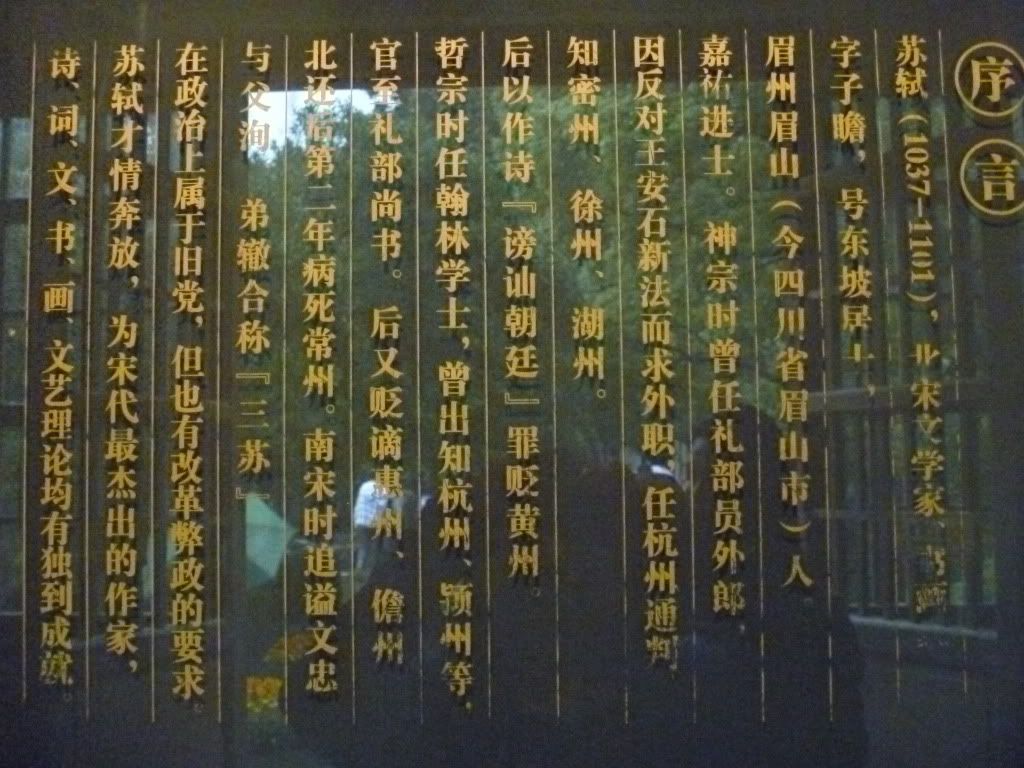 序言
苏轼（1037-1101），北宋文学家、书画
字子瞻，号东坡居士，
眉州眉山（今四川省眉山市）人。
嘉祐进士。神宗时曾任礼部员外郎，
因反对王安石新法而求外职，任杭州通判，
知密州、徐州、湖州。
后以作诗『谤讪朝廷』罪贬黄州。
哲宗时任翰林学士，曾出知杭州、颍州等，
官至礼部尚书。后又贬谪惠州、儋州
北还后第二年病死常州。南宋时追谥文忠
与父洵 弟辙合称『三苏』
在政治上属于旧党，但也有改革弊政的要求。
苏轼才情奔放，为宋代最杰出的作家，
诗、词、文、书、画、文艺理论均有独到成就。